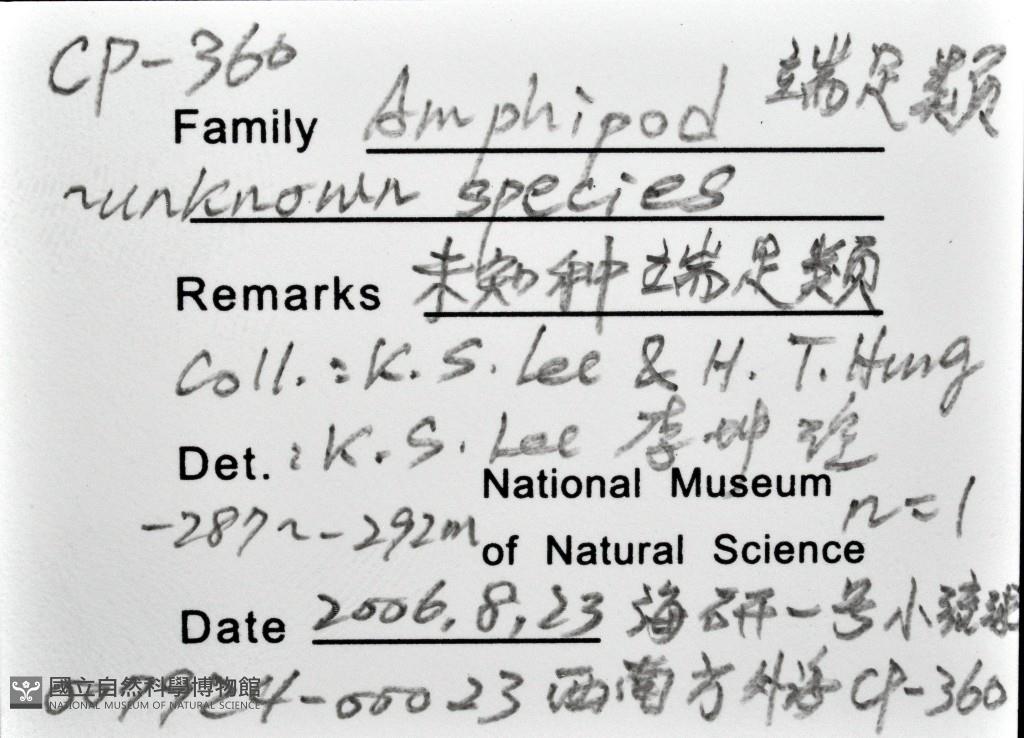 CP-360
Family Amphipod 端足類
~unknown species
Remarks 未知种端足類
Coll.: K. S. Lee & H. T. Hung
Det. : K. S. Lee 李坤瑄
National Museum n=1
-287~-292m of Natural Science
Date 2006,8,23 海研一号小琉球
-00023 西南方外海 CP-360
國立自然科學博物館
NATIONAL MUSEUM OF NATURAL SCIENCE